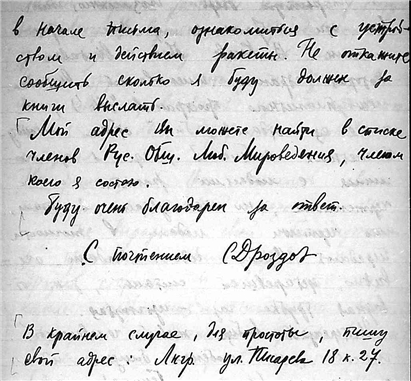 в начале письма, ознакомиться с устрой-
ством и действием ракеты. Не откажите
сообщить сколько я буду должен за
книги выслать.
[Мой адрес Вы можете найти в списке
членов Рус. Общ. Люб. Мироведения, членом
коего я состою.
Буду очень благодарен за ответ.
С почтением СДроздов
В крайнем случае, для простоты, пишу
свой адрес: Лнгр. ул. Писарева 18 к. 27.